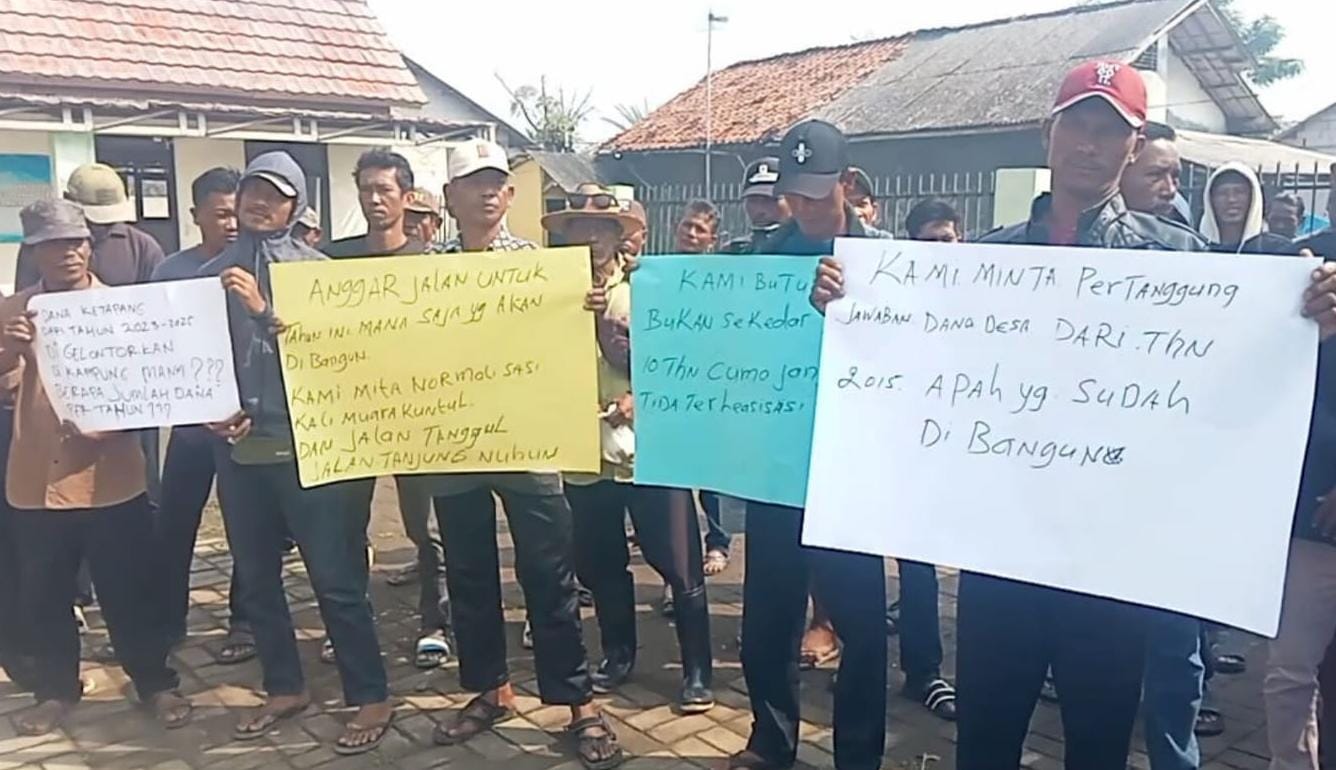 DANA KETAPANG
DARI TAHUN 2023-2025
DI GELONTORKAN
DI KAMPUNG MANA ???
BERAPA JUMLAH DANA
PER TAHUN ???
ANGGAR JALAN UNTUK
TAHUN INI MANA SAJA yg AKAN
Di Bangun.
KAMI MITA NORMALISASI
KALI MUARA KUNTUL.
DAN JALAN TANGGUL
JALAN-TANJUNG NUHUN
KAMI BUTU
BUKAN SeKedar
10 Thn Cuma Jan
TIDA TerLeasisasi
KAMI MINTA PerTANGGUNG
JAWABAN. DANA DESA DARI.Thn
2015. APAH yg. SUDAH
Di BANGUN